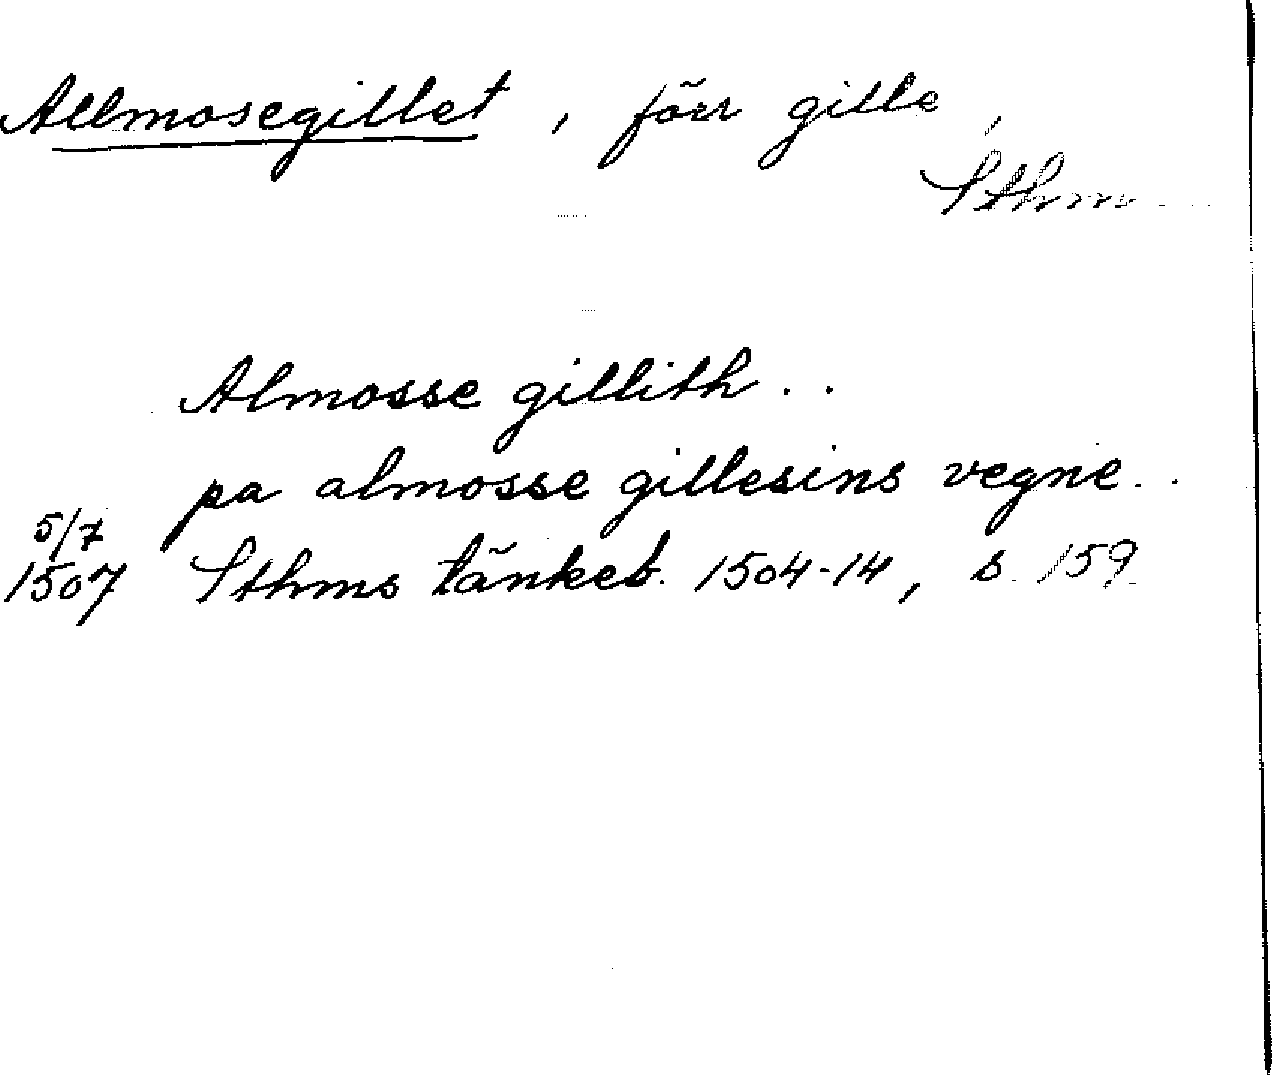 Allmosegillet, förr gille,
Sthm
Almosse gillith . .
pa almosse gillesins vegne . .
5/7
1507 Sthms tänkeb. 1504-14, s. 159